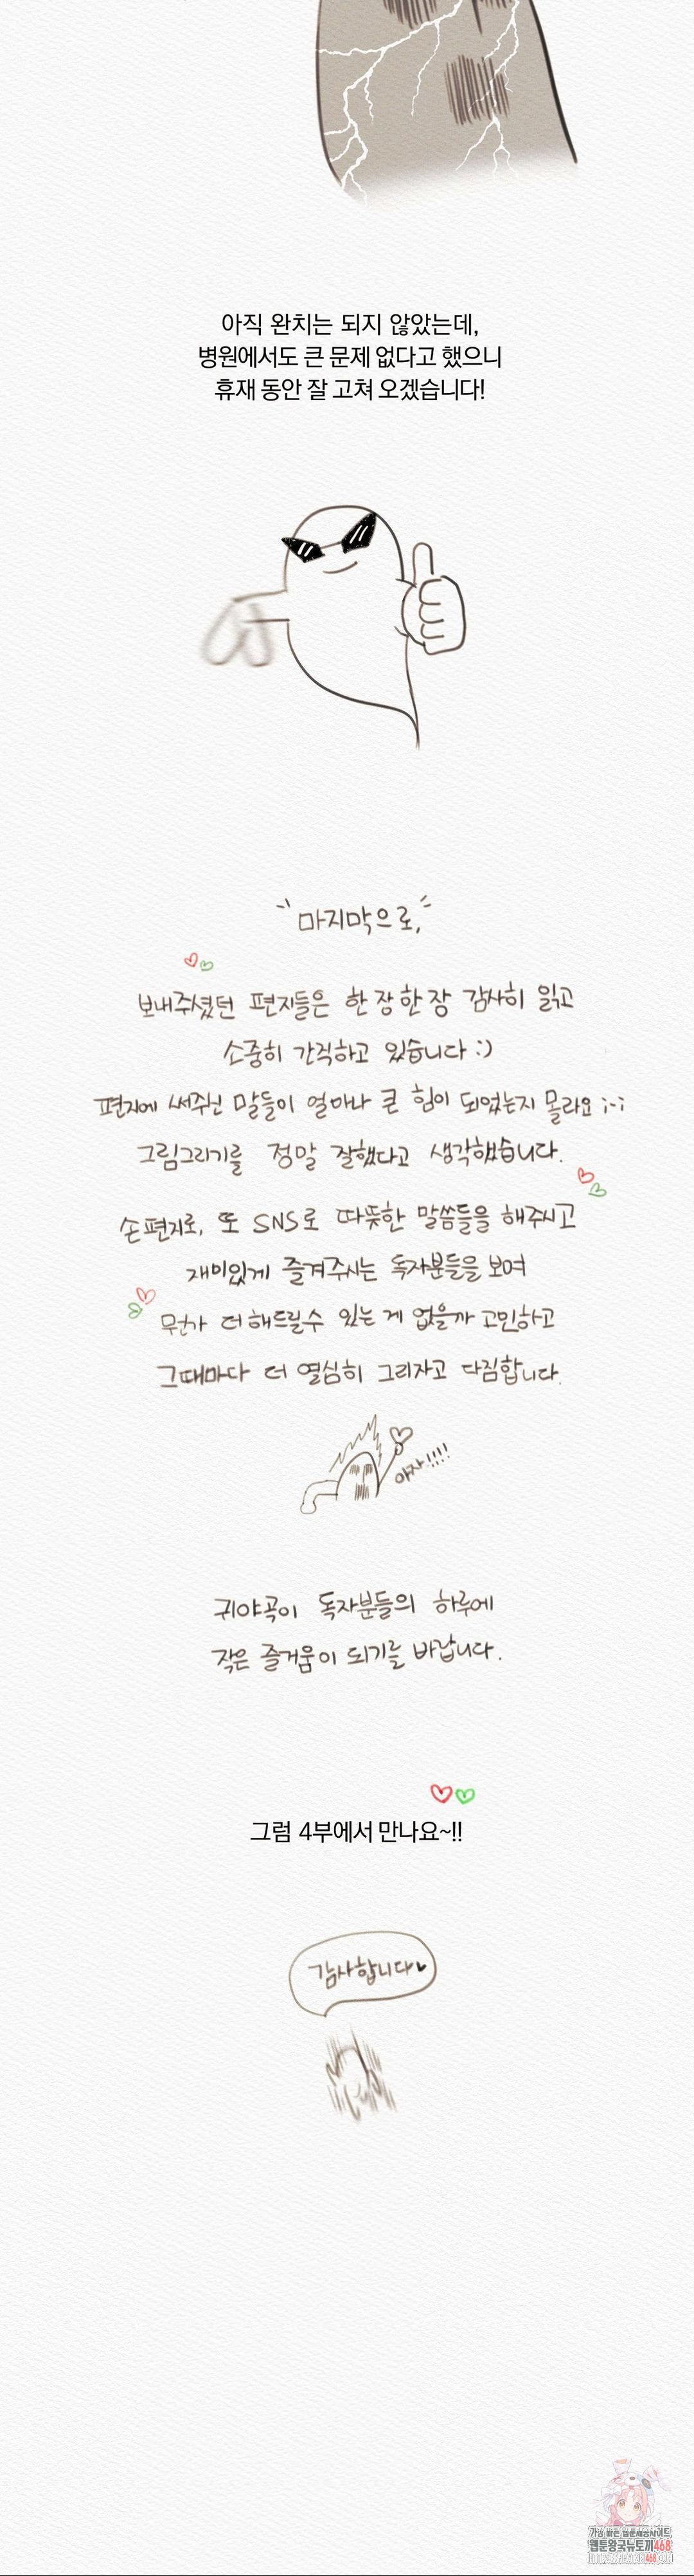 아직 완치는 되지 않았는데,
병원에서도 큰 문제 없다고 했으니
휴재 동안 잘 고쳐 오겠습니다!
마지막으로,
보내주셨던 편지들은 한 장 한 장 감사히 읽고
소중히 간직하고 있습니다 :)
편지에 써주신 말들이 얼마나 큰 힘이 되었는지 몰라요 ;-;
그림그리기를 정말 잘했다고 생각했습니다.
손편지로, 또 SNS로 따뜻한 말씀들을 해주시고
재미있게 즐겨주시는 독자분들을 보며
무언가 더 해드릴 수 있는 게 없을까 고민하고
그때마다 더 열심히 그리자고 다짐합니다.
아자!!!!
귀야곡이 독자분들의 하루에
작은 즐거움이 되기를 바랍니다.
그럼 4부에서 만나요~!!
감사합니다♥
가장 빠른 웹툰제공사이트
웹툰왕국뉴토끼468